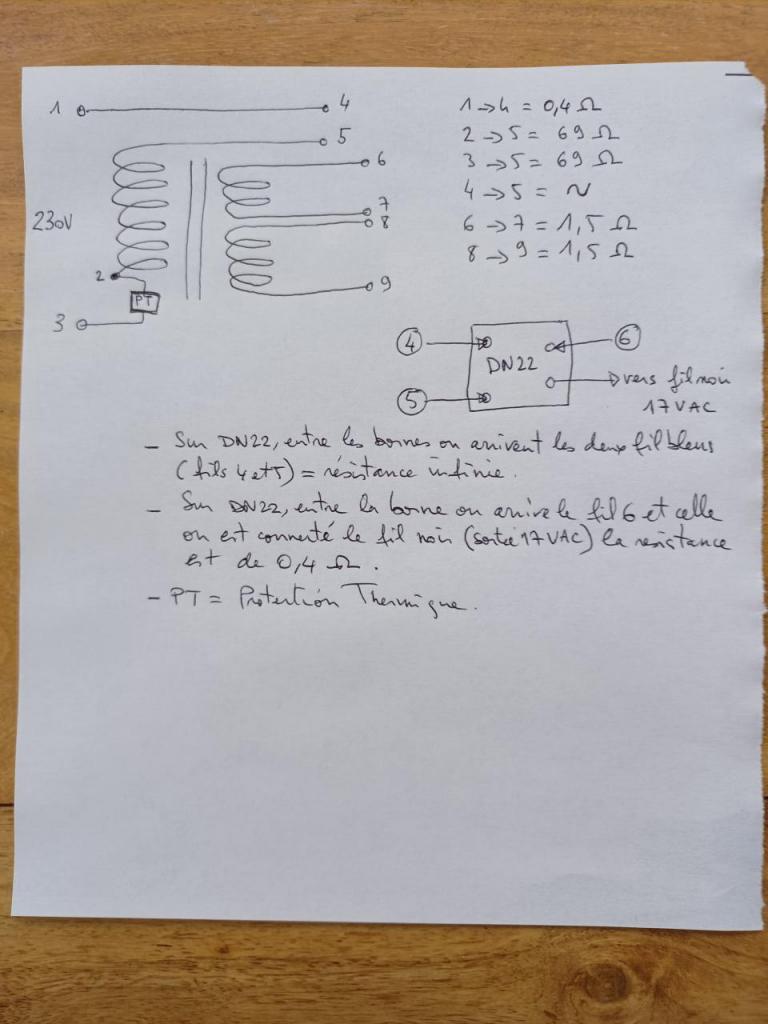 1
4
5
6
7
8
9
230V
2
PT
3
1 → 4 = 0,4 Ω
2 → 5 = 69 Ω
3 → 5 = 69 Ω
4 → 5 = ~
6 → 7 = 1,5 Ω
8 → 9 = 1,5 Ω
4
6
DN22
5
vers fil noir
17VAC
- Sur DN22, entre les bornes ou arrivent les deux fil bleus
(fils 4 et 5) = résistance infinie.
- Sur DN22, entre la borne ou arrive le fil 6 et celle
ou est connecté le fil noir (sortie 17VAC) la resistance
est de 0,4 Ω.
- PT = Protection Thermique.